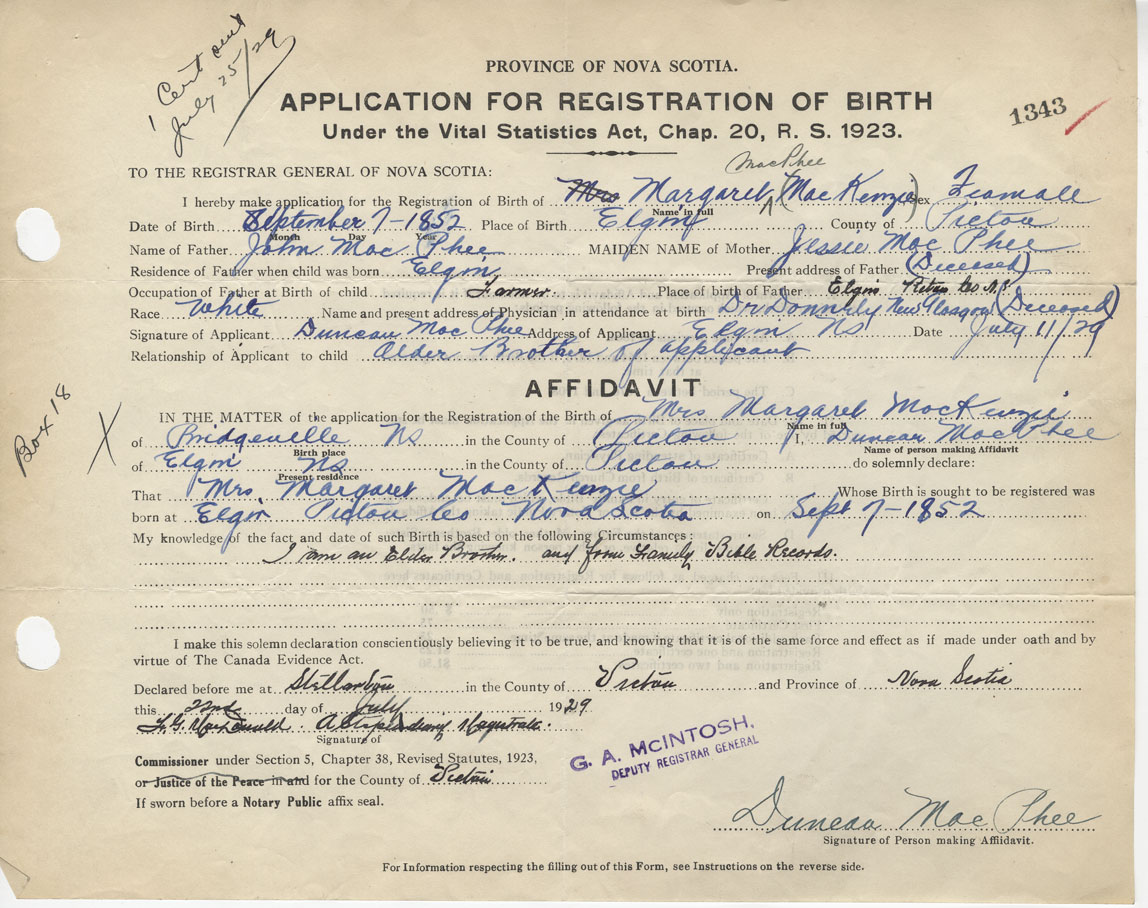 1 Cert sent
July 25/29
PROVINCE OF NOVA SCOTIA.
APPLICATION FOR REGISTRATION OF BIRTH
1343
Under the Vital Statistics Act, Chap. 20, R. S. 1923.
MacPhee
TO THE REGISTRAR GENERAL OF NOVA SCOTIA:
I hereby make application for the Registration of Birth of Mrs Margaret (MacKenzie) Sex Feamale
Name in full
Date of Birth September 7-1852 Place of Birth Elgin County of Pictou
Month Day Year
Name of Father John Mac Phee MAIDEN NAME of Mother Jessie Mac Phee
Residence of Father when child was born Elgin Present address of Father (Deceased)
Occupation of Father at Birth of child Farmer Place of birth of Father Elgin Pictou Co N.S.
Race White Name and present address of Physician in attendance at birth Dr Donnely New Glasgow (Deceased)
Signature of Applicant Duncan Mac Phee Address of Applicant Elgin Ns Date July 11/29
Relationship of Applicant to child Older Brother of applicant
AFFIDAVIT
Box 18
IN THE MATTER of the application for the Registration of the Birth of Mrs Margaret MacKenzie
Name in full
of Bridgeville Ns in the County of Pictou I, Duncan MacPhee
Birth place Name of person making Affidavit
of Elgin Ns in the County of Pictou do solemnly declare:
Present residence
That Mrs. Margaret MacKenzie Whose Birth is sought to be registered was
born at Elgin Pictou Co Nova Scotia on Sept 7-1852
My knowledge of the fact and date of such Birth is based on the following Circumstances:
I am an Elder Brother. and from Family Bible Records.
I make this solemn declaration conscientiously believing it to be true, and knowing that it is of the same force and effect as if made under oath and by
virtue of The Canada Evidence Act.
Declared before me at Stellarton in the County of Pictou and Province of Nova Scotia
this 22nd day of July 1929
F. G. MacDonald. A Stipendiary Magistrate.
Signature of
G. A. McINTOSH,
DEPUTY REGISTRAR GENERAL
Commissioner under Section 5, Chapter 38, Revised Statutes, 1923,
or Justice of the Peace in and for the County of Pictou
If sworn before a Notary Public affix seal.
Duncan Mac Phee
Signature of Person making Affidavit.
For Information respecting the filling out of this Form, see Instructions on the reverse side.